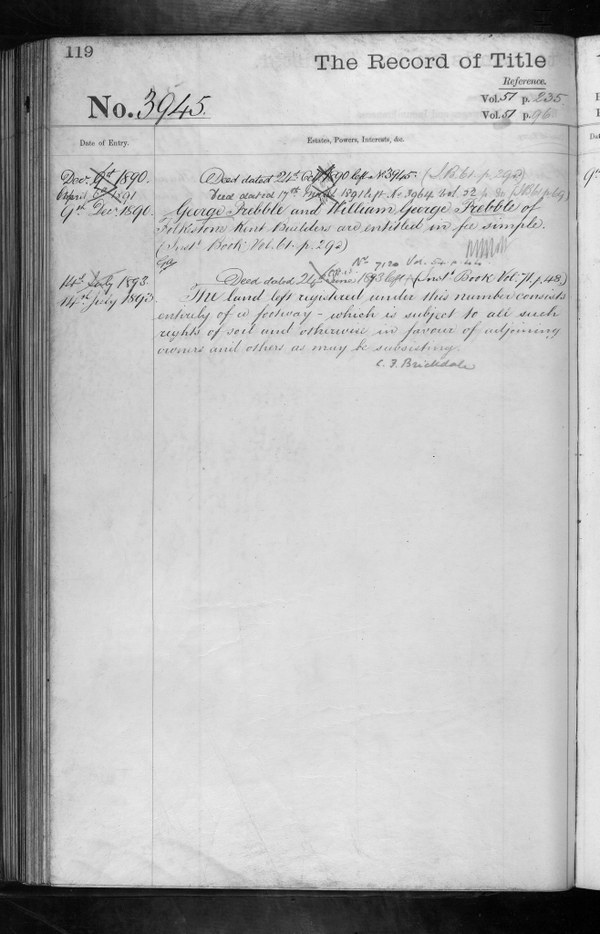 119
The Record of Title
Reference.
No. 3945.
Vol. 51 p. 235
Vol. 51 p. 96
Date of Entry.
Estates, Powers, Interests, &c.
Decr. 9th 1890. Deed dated 24th 1890 left No. 3945. (I. B. 61. p. 292)
April 91 Deed dated 17th 1891 left No 3964 Vol. 52 p. 80
9th Decr. 1890. George Prebble and William George Prebble of
Folkestone Kent Builders are entitled in fee simple.
(Inst. Book Vol. 61. p. 292)
No. 7120 Vol. 54 p.
14th July 1893. Deed dated 24th June 1893 left (Inst. Book Vol. 71. p. 48)
14th July 1893. The Land left registered under this number consists
entirely of a footway - which is subject to all such
rights of soil and otherwise in favour of adjoining
owners and others as may be subsisting.
C. F. Brickdale